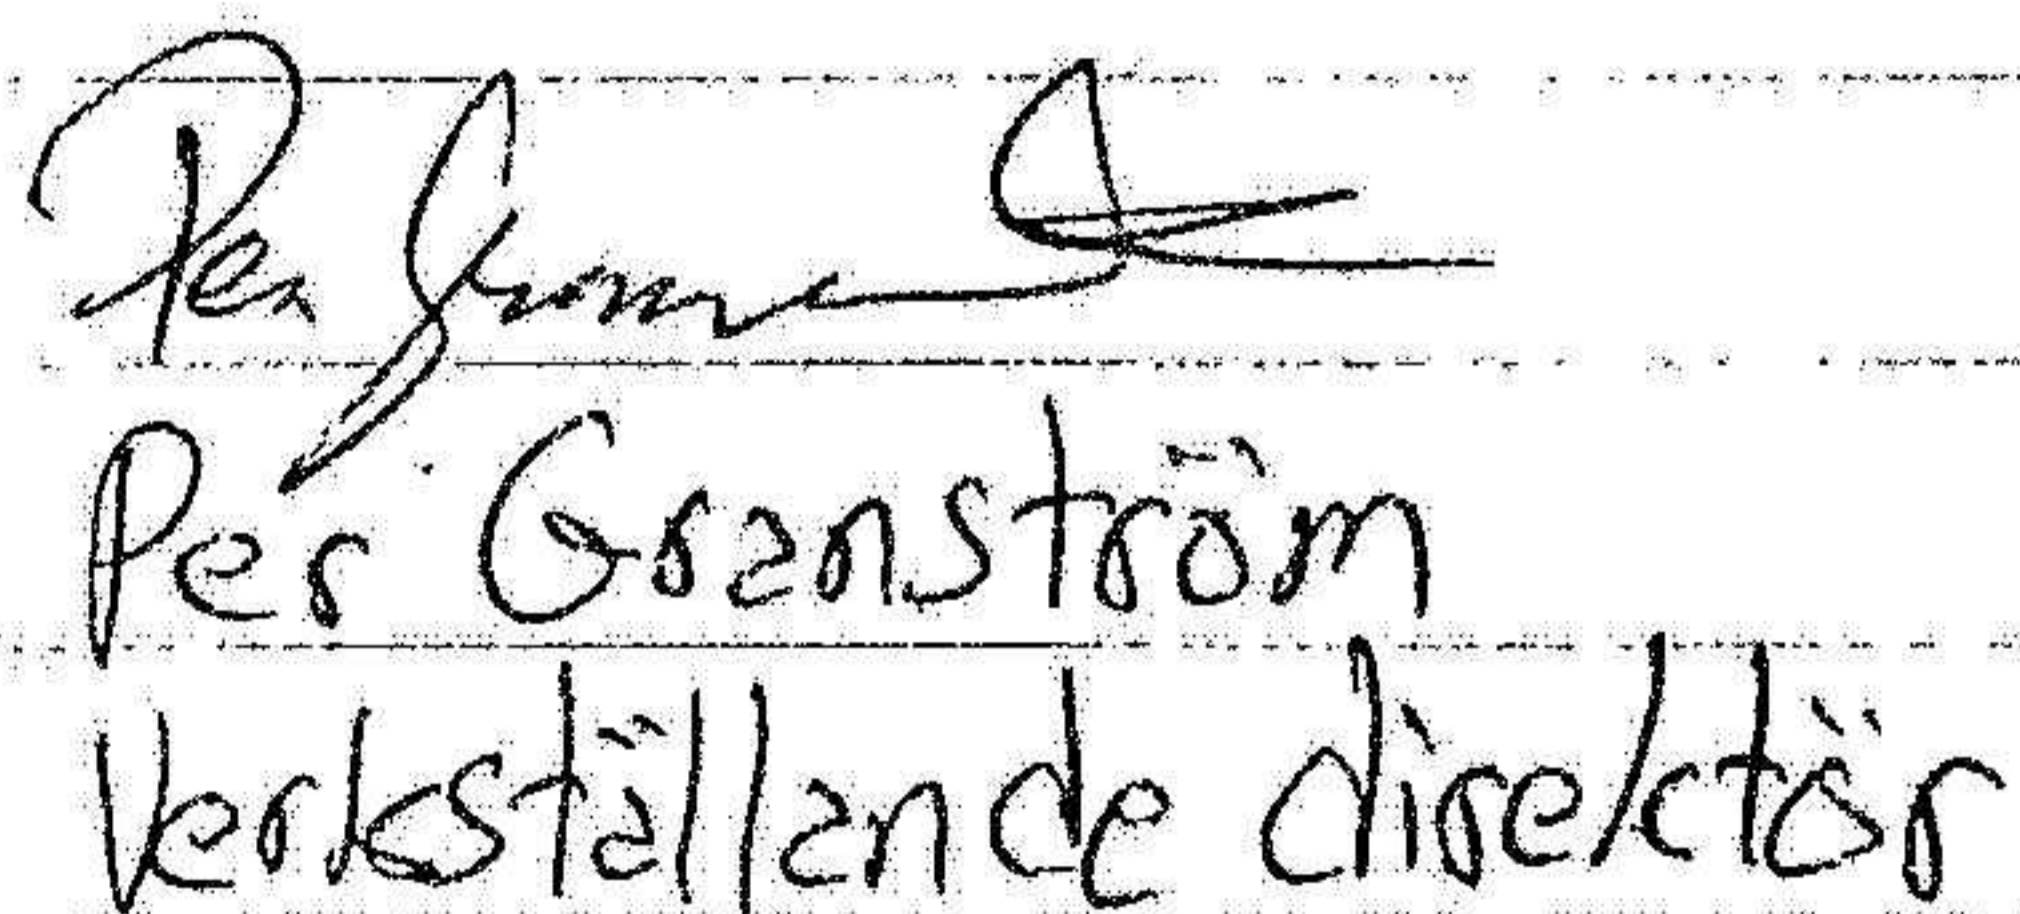 Per Granström
Per Granström
Verkställande direktör